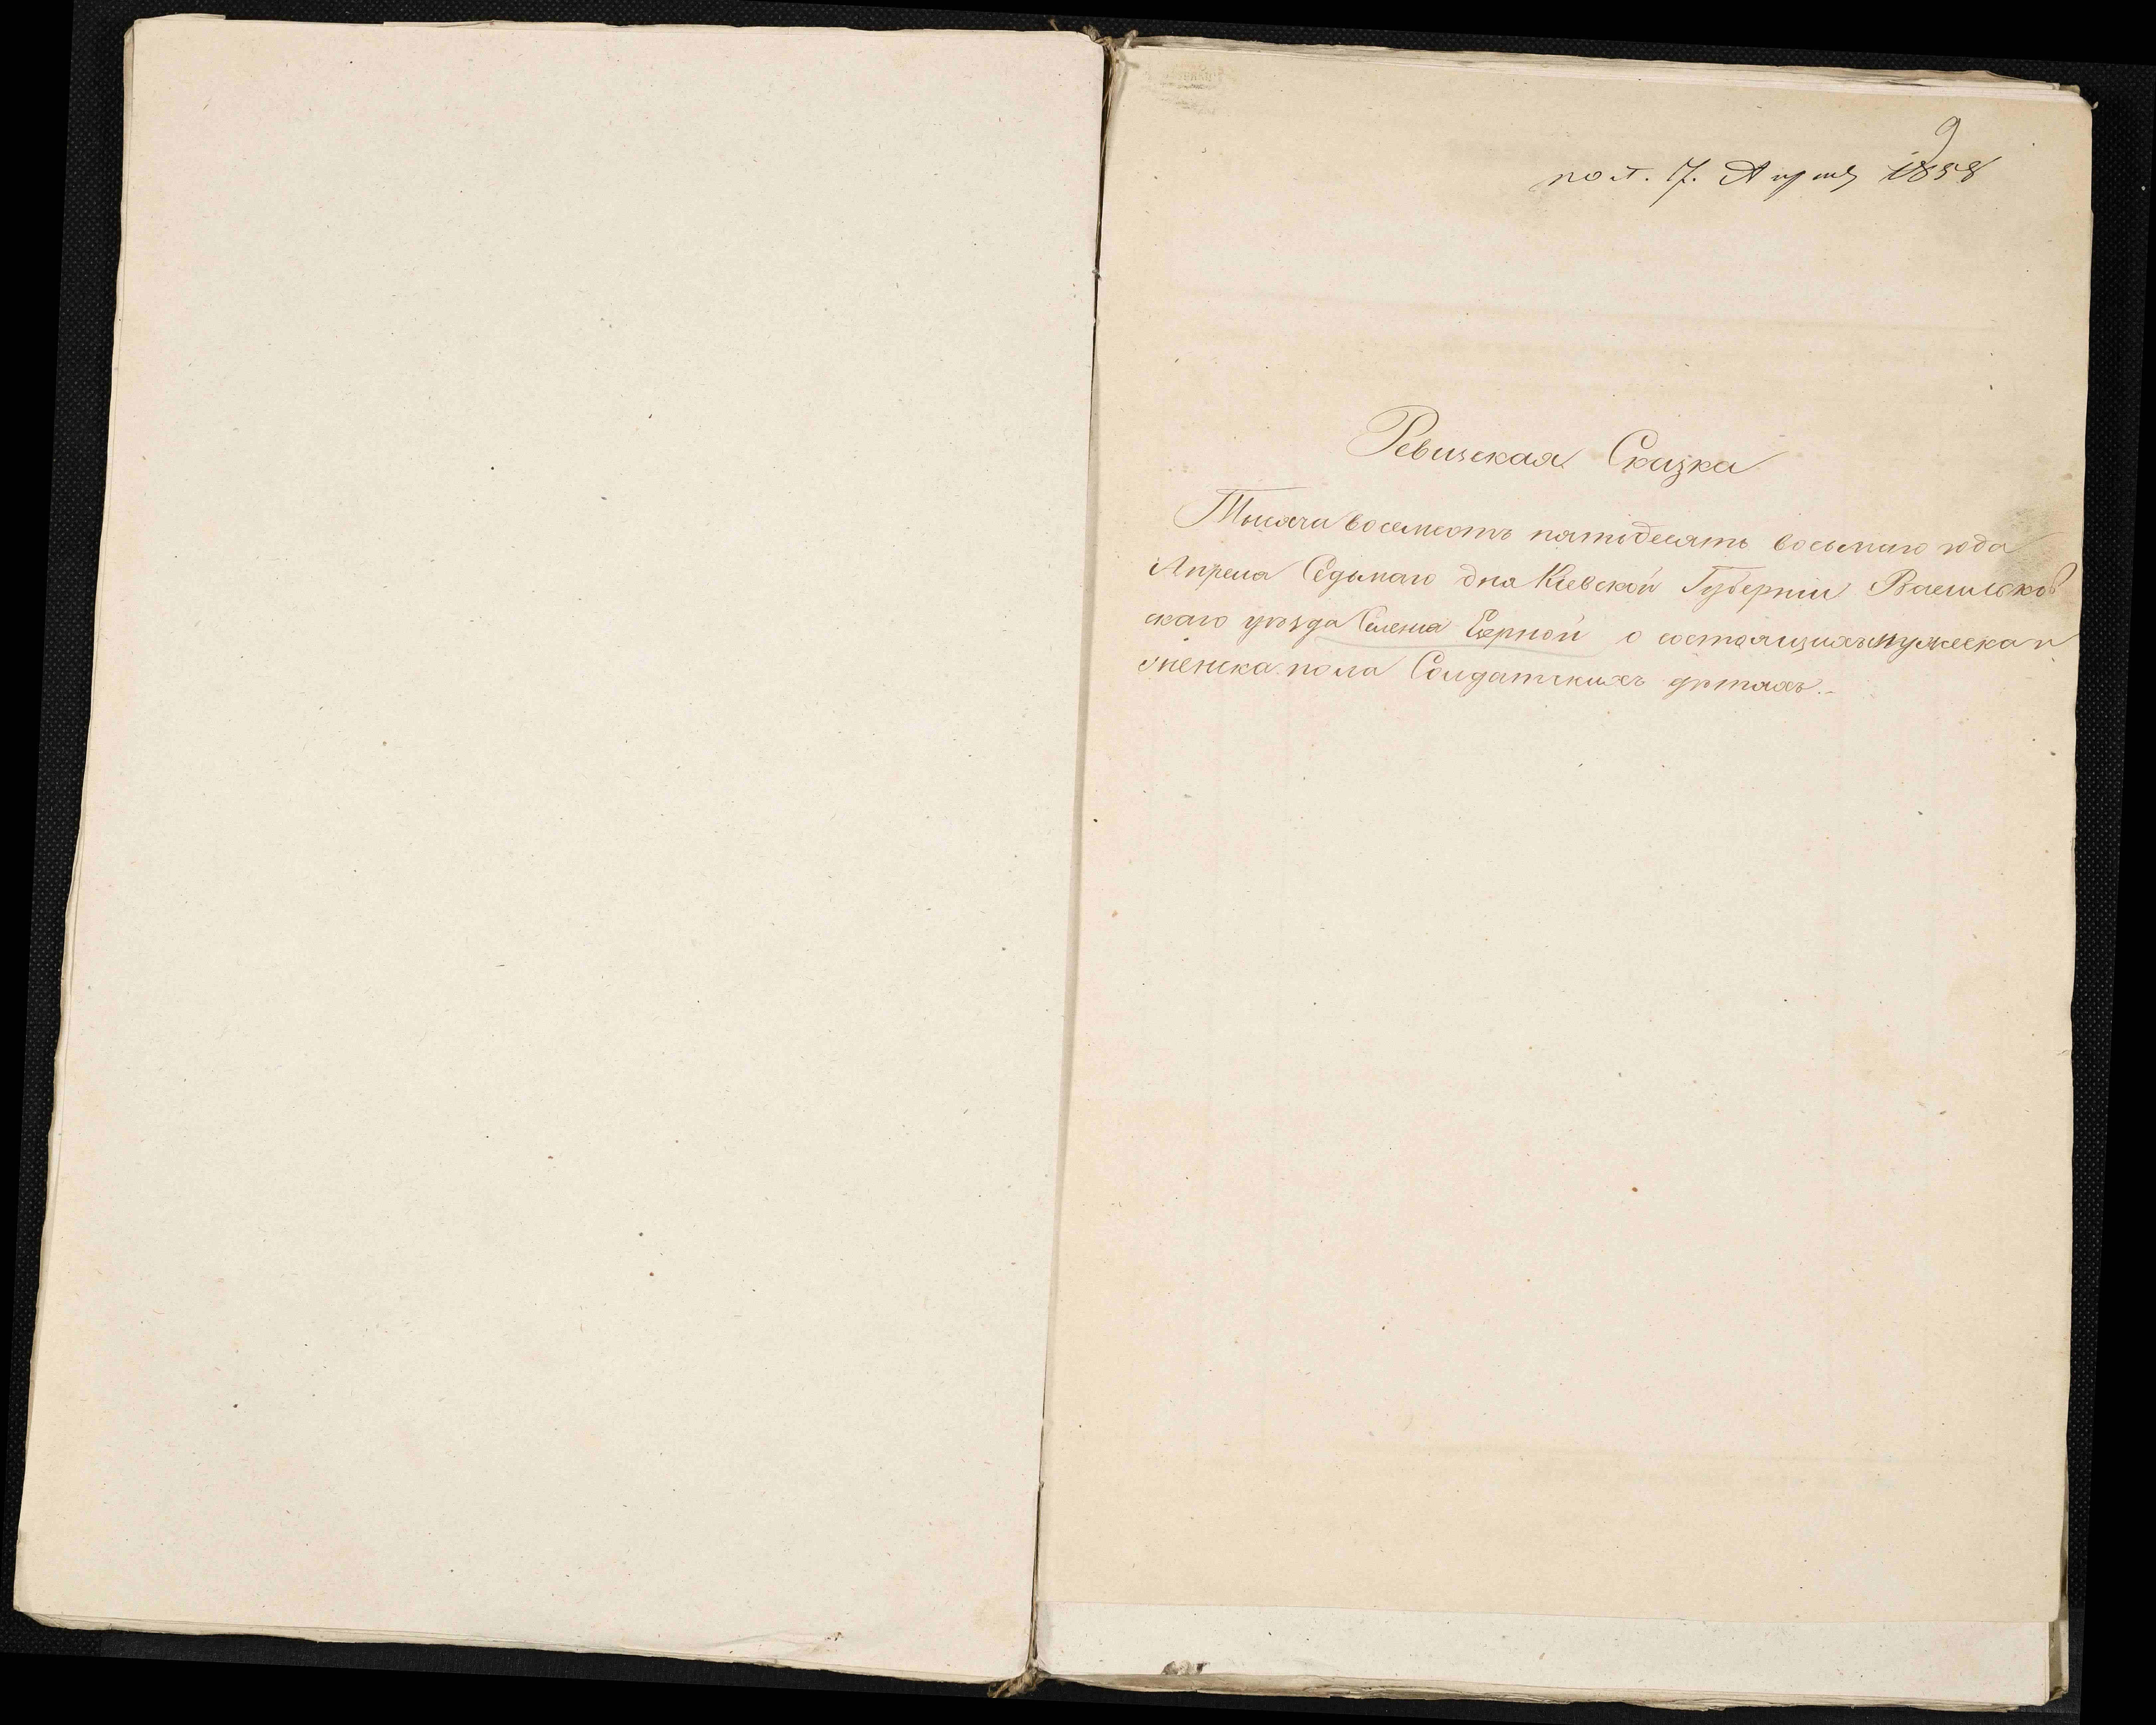 9
пол. 7. Апреля 1858
Ревизская Сказка
Тысячи восемсотъ пятидесять восьмаго года
Апреля Седьмаго дня Кіевской Губерніи Васильков
скаго уѣзда Селенія Езерной о состоящихъ мужеска и
женска пола Солдатскихъ дѣтяхъ.-